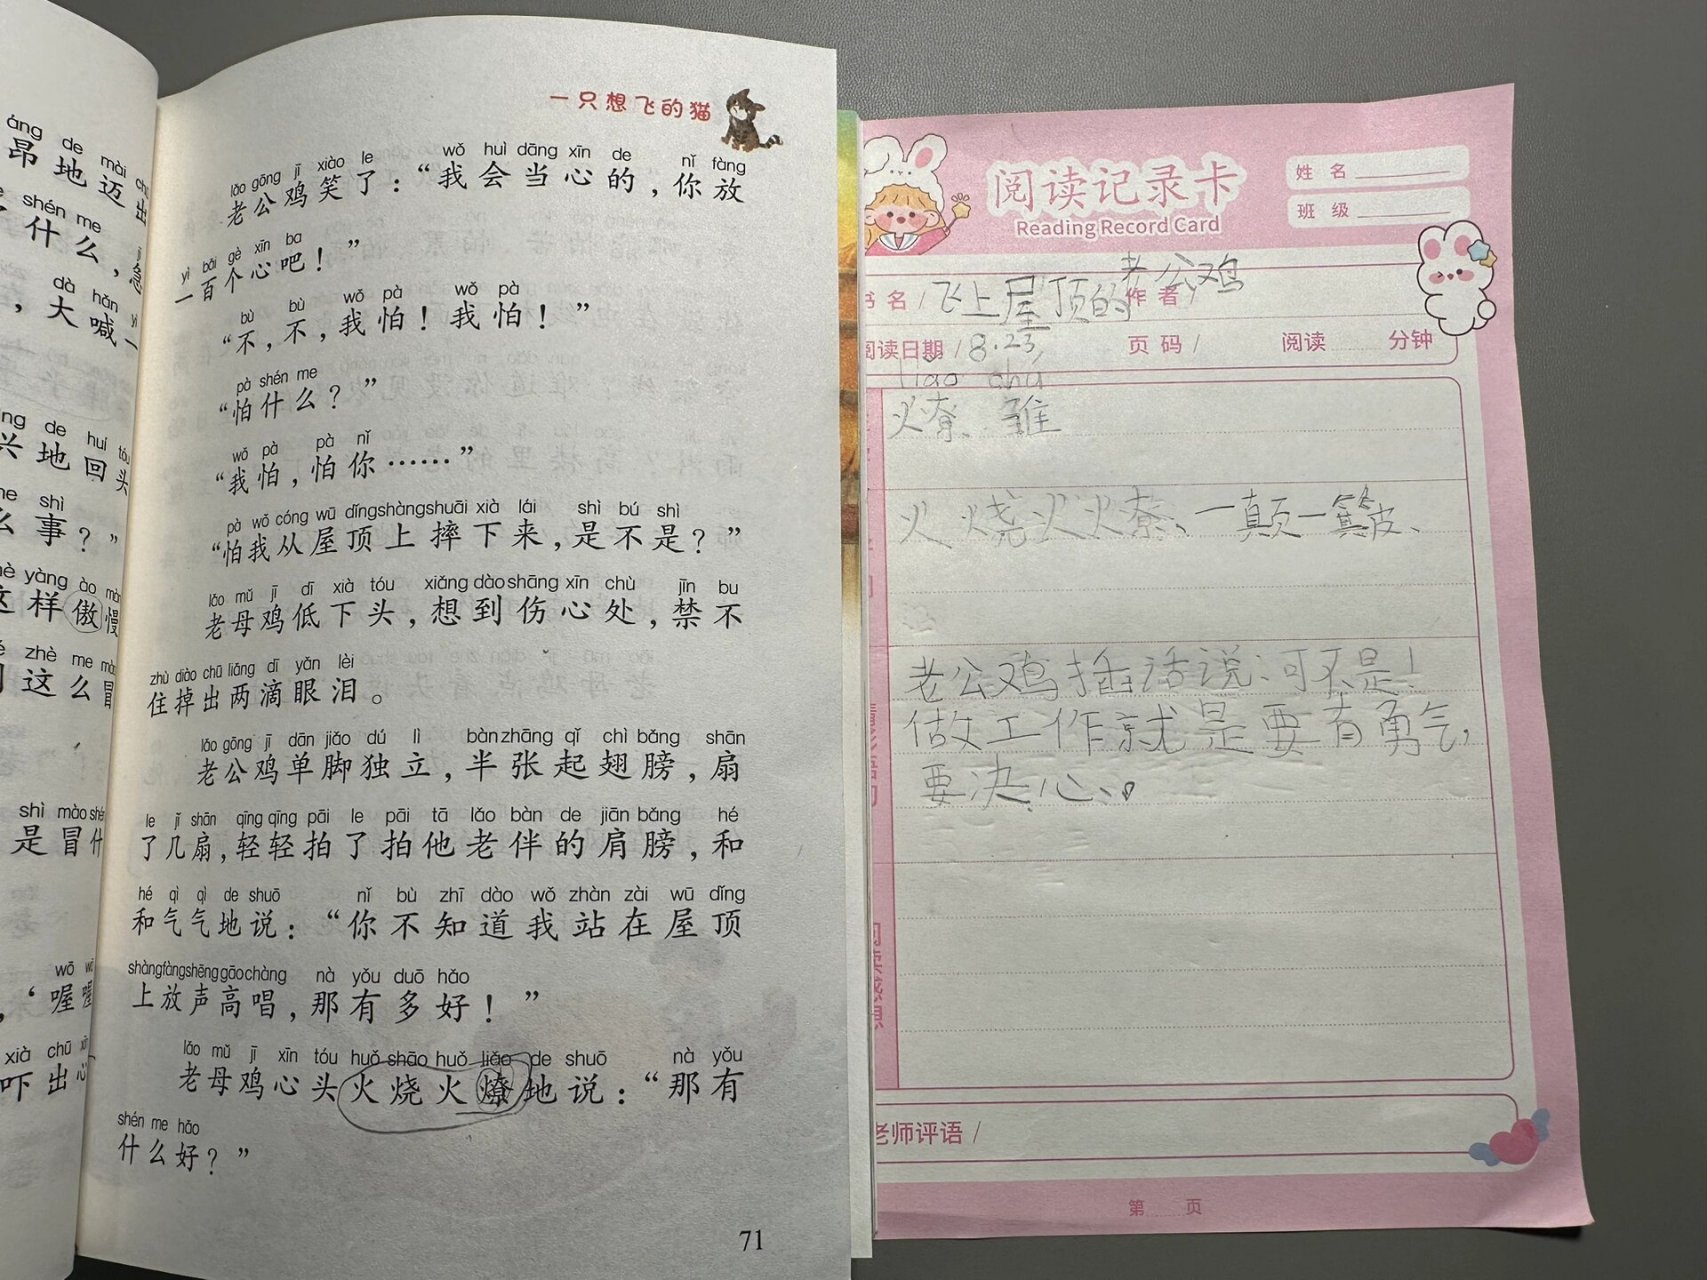 áng de mài
昂地迈出
shén me
什么，急
dà hǎn
，大喊一
de huí tóu
兴地回头
me shì
么事？”
yàng ào màn
这样傲慢
zhè me
这么冒
shì mào shén
是冒什
wō
‘喔喔
xià chū
吓出
一只想飞的猫
lǎo gōng jī xiào le wǒ huì dāng xīn de nǐ fàng
老公鸡笑了：“我会当心的，你放
yì bǎi gè xīn ba
一百个心吧！”
bù bù wǒ pà wǒ pà
“不，不，我怕！我怕！”
pà shén me
“怕什么？”
wǒ pà pà nǐ
“我怕，怕你……”
pà wǒ cóng wū dǐng shàng shuāi xià lái shì bú shì
“怕我从屋顶上摔下来，是不是？”
lǎo mǔ jī dī xià tóu xiǎng dào shāng xīn chù jīn bu
老母鸡低下头，想到伤心处，禁不
zhù diào chū liǎng dī yǎn lèi
住掉出两滴眼泪。
lǎo gōng jī dān jiǎo dú lì bàn zhāng qǐ chì bǎng shān
老公鸡单脚独立，半张起翅膀，扇
le jǐ shān qīng qīng pāi le pāi tā lǎo bàn de jiān bǎng hé
了几扇，轻轻拍了拍他老伴的肩膀，和
hé qì qì de shuō nǐ bù zhī dào wǒ zhàn zài wū dǐng
和气气地说：“你不知道我站在屋顶
shàng fàng shēng gāo chàng nà yǒu duō hǎo
上放声高唱，那有多好！”
lǎo mǔ jī xīn tóu huǒ shāo huǒ liǎo de shuō nà yǒu
老母鸡心头火烧火燎地说：“那有
shén me hǎo
什么好？”
71
阅读记录卡
Reading Record Card
姓 名
班 级
书 名 / 飞上屋顶的老公鸡 作 者 /
阅读日期 / 8.23 页 码 / 阅读 分钟
liáo chú
燎、雏
火烧火燎、一颠一簸、
老公鸡插话说：可不是！
做工作就是要有勇气，
要决心。
阅读感想
老师评语 /
第 页